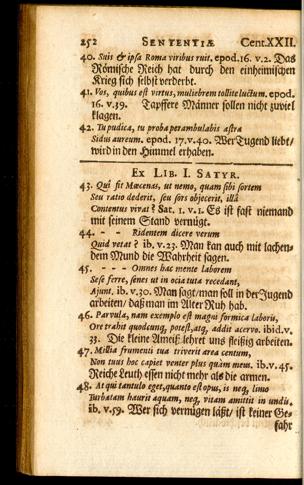 252 SENTENTIÆ Cent.XXII.
40. Suis & ipsa Roma viribus ruit. epod.16. v.2. Das
Römische Reich hat durch den einheimischen
Krieg sich selbst verderbt.
41. Vos, quibus est virtus, muliebrem tollite luctum. epod.
16. v.39. Tapffere Männer sollen nicht zuviel
klagen.
42. Tu pudica, tu proba perambulabis astra
Sidus aureum. epod. 17. v.40. Wer Tugend liebt/
wird in den Himmel erhaben.
EX LIB. I. SATYR.
43. Qui fit Mæcenas, ut nemo, quam sibi sortem
Seu ratio dederit, seu sors objecerit, illâ
Contentus vivat? Sat. 1. v.1. Es ist fast niemand
mit seinem Stand vernügt.
44. - - Ridentem dicere verum
Quid vetat? ib. v.23. Man kan auch mit lachen-
dem Mund die Wahrheit sagen.
45. - - - Omnes hac mente laborem
Sese ferre, senes ut in ocia tuta recedant,
Ajunt. ib. v.30. Man sagt/man soll in der Jugend
arbeiten/ daß man im Alter Ruh hab.
46. Parvula, nam exemplo est magni formica laboris,
Ore trahit quodcunq; potest, atq; addit acervo. ibid. v.
33. Die kleine Ameiß lehret uns fleissig arbeiten.
47. Millia frumenti tua triverit area centum,
Non tuus hoc capiet venter plus quàm meus. ib. v.45.
Reiche Leuth essen nicht mehr als die armen.
48. At qui tantulo eget, quanto est opus, is neq; limo
Turbatam haurit aquam, neq; vitam amittit in undis.
ib. v.59. Wer sich vernügen läßt/ ist keiner Ge-
fahr